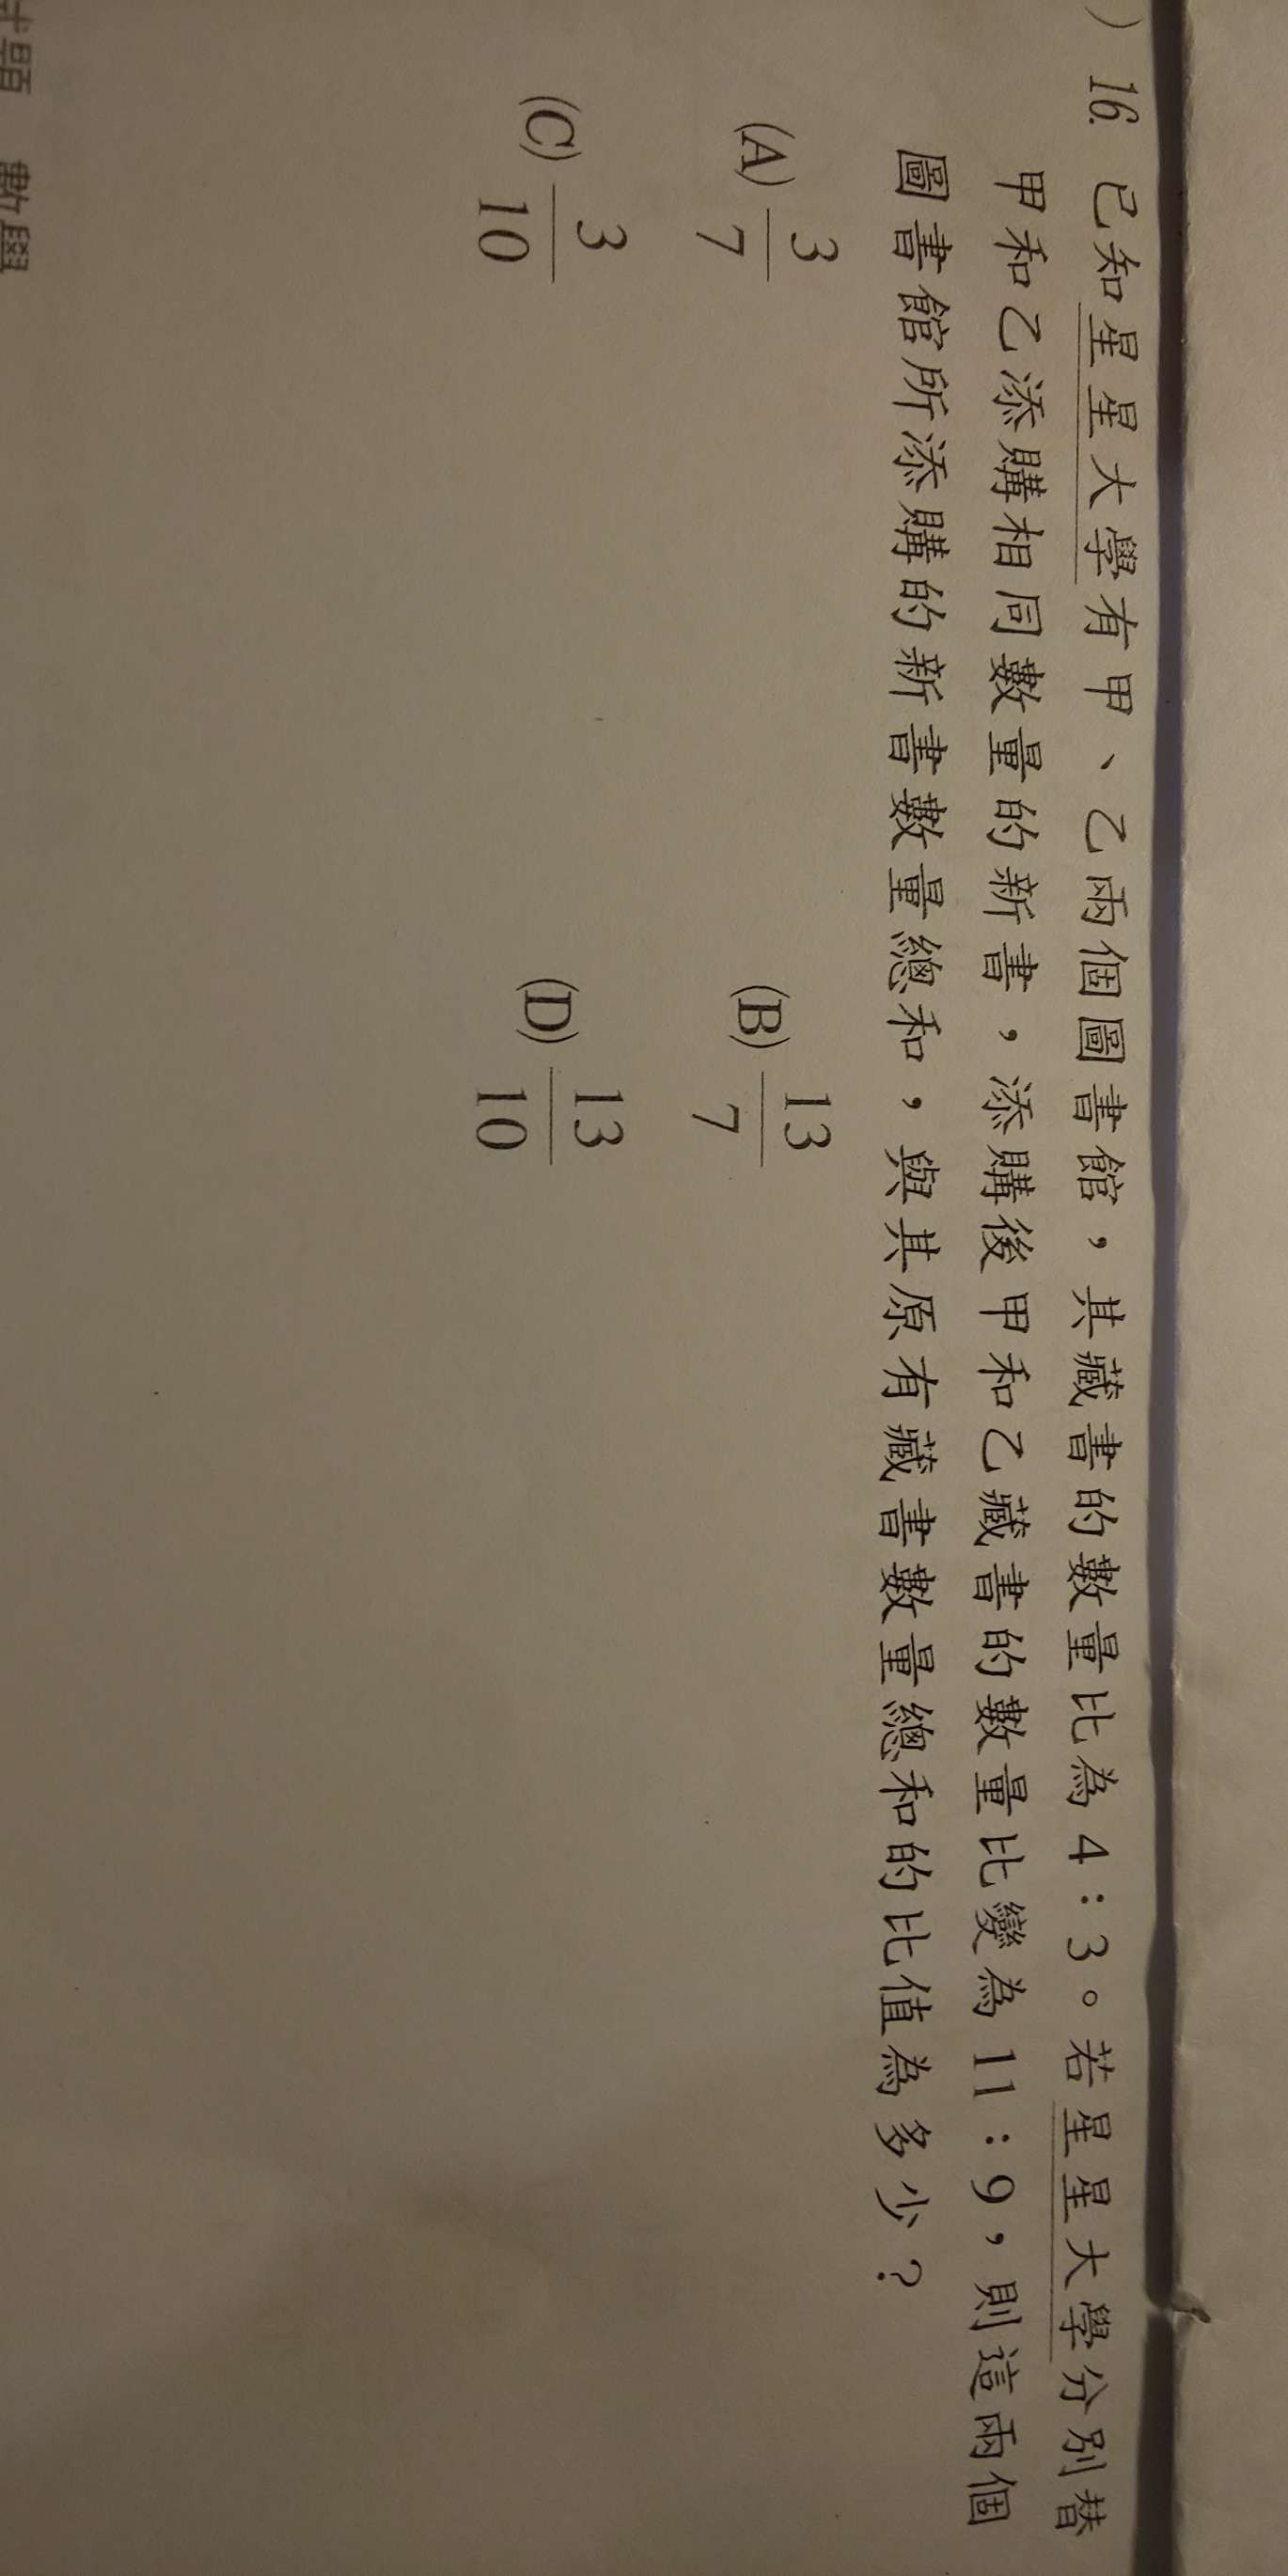 ) 16. 已知星星大學有甲、乙兩個圖書館，其藏書的數量比為 4：3。若星星大學分別替
甲和乙添購相同數量的新書，添購後甲和乙藏書的數量比變為 11：9，則這兩個
圖書館所添購的新書數量總和，與其原有藏書數量總和的比值為多少？
(A) 3/7 (B) 13/7
(C) 3/10 (D) 13/10
試題 數學